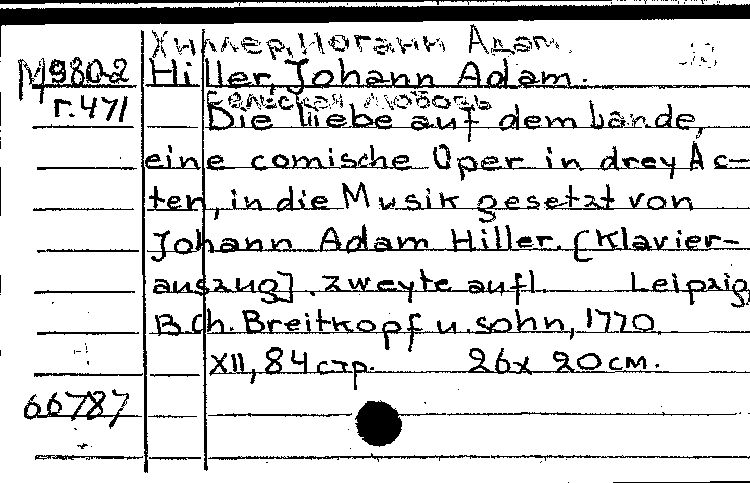 Хиллер, Иоганн Адам.
М980-2 Hiller, Johann Adam.
г.471 Сельская любовь
Die liebe auf dem Lande,
eine comische Oper in drey Ac-
ten, in die Musik gesetzt von
Johann Adam Hiller. [Klavier-
auszug]. zweyte aufl. Leipzig,
B.Ch. Breitkopf u. sohn, 1770.
XII, 84 стр. 26x20 см.
66787